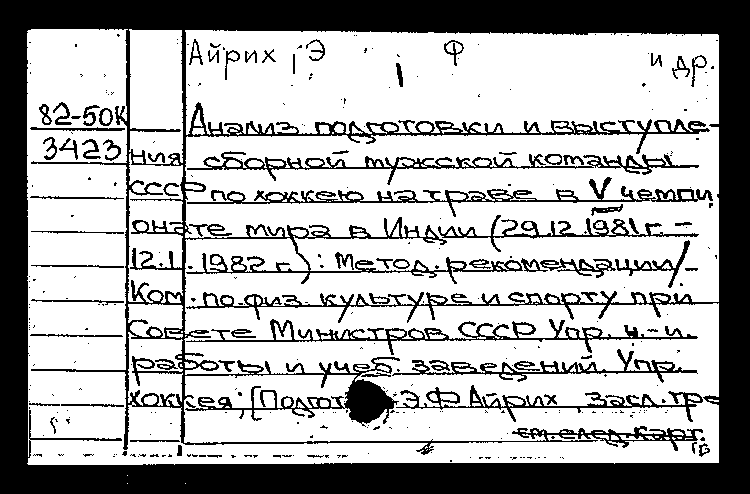 Айрих Э Ф и др.
82-50К Анализ подготовки и выступле-
3423 ния сборной мужской команды
СССР по хоккею на траве в V чемпи-
онате мира в Индии (29.12.1981 г. –
12.1.1982 г.): Метод. рекомендации/
Ком. по физ. культуре и спорту при
Совете Министров СССР Упр. н.-и.
работы и учеб. заведений, Упр.
хоккея; [Подгот Э.Ф Айрих, засл. тре
см. след. карт.